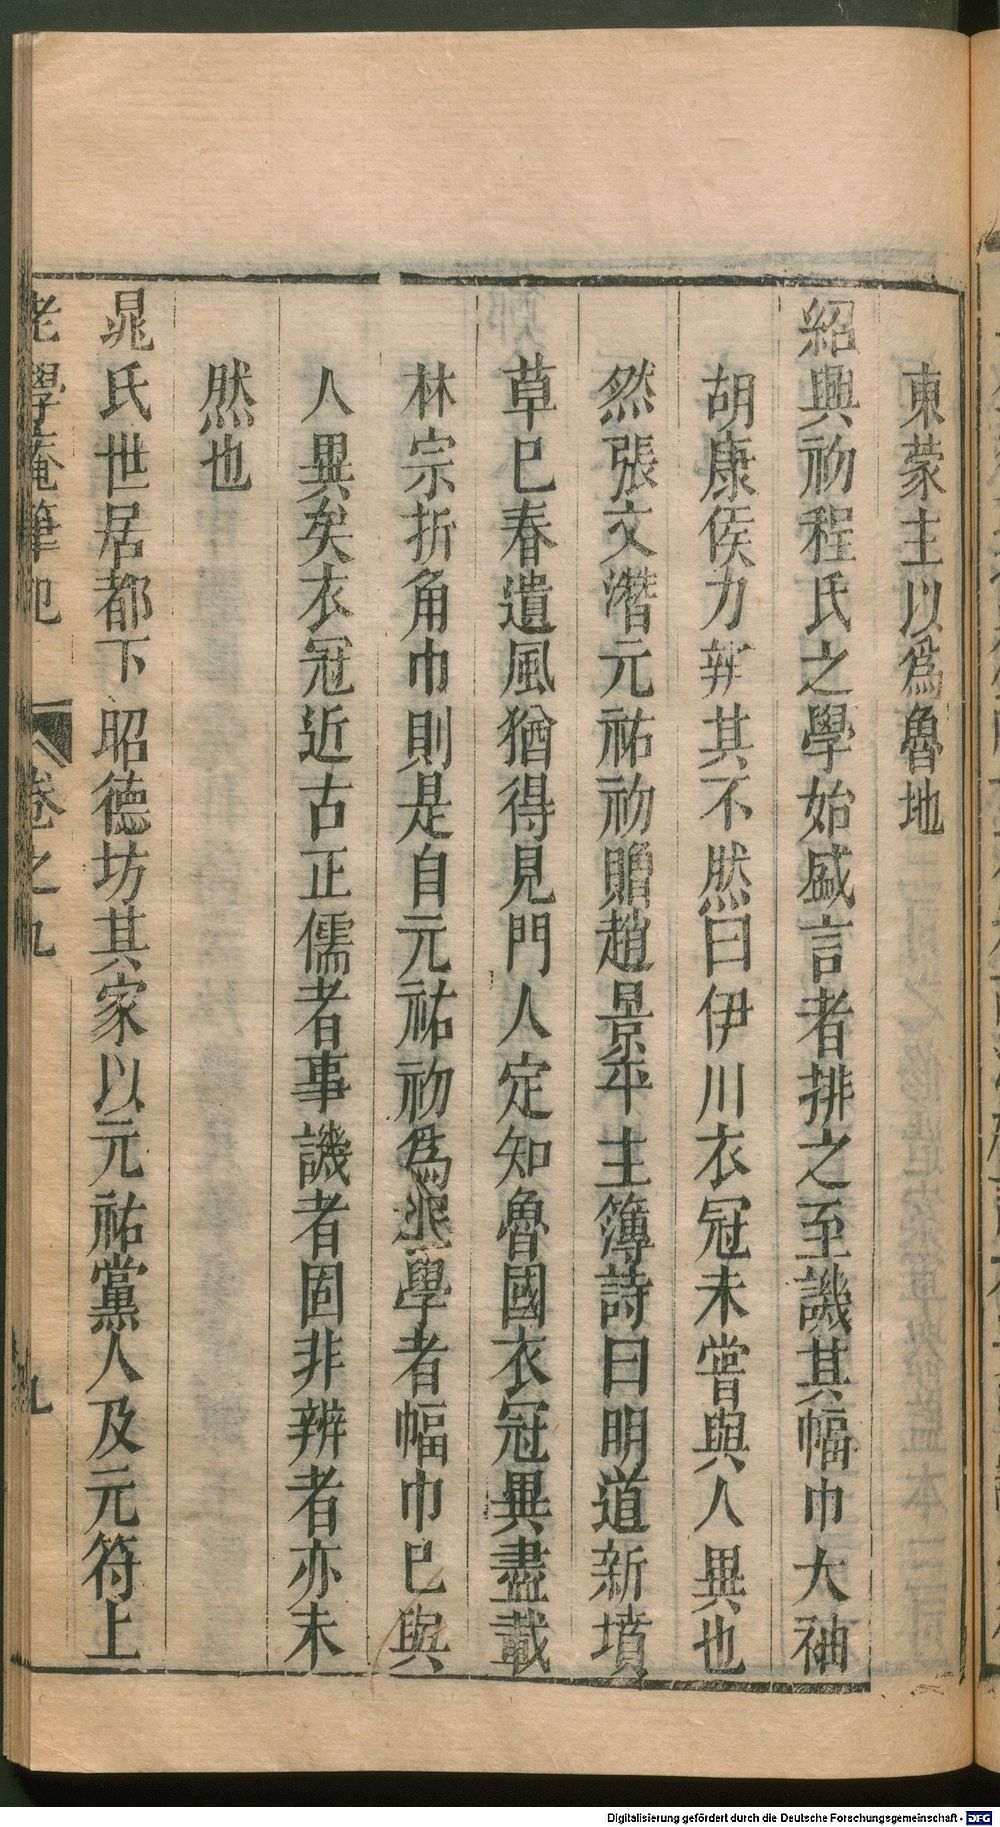 東蒙主以爲魯地
紹興初程氏之學始盛言者排之至譏其幅巾大袖
胡康侯力辨其不然曰伊川衣冠未嘗與人異也
然張文潛元祐初贈趙景平主簿詩曰明道新墳
草已春遺風猶得見門人定知魯國衣冠異盡戴
林宗折角巾則是自元祐初爲程學者幅巾已與
人異矣衣冠近古正儒者事譏者固非辨者亦未
然也
晁氏世居都下昭德坊其家以元祐黨人及元符上
老學菴筆記 卷之九 九
Digitalisierung gefördert durch die Deutsche Forschungsgemeinschaft - DFG